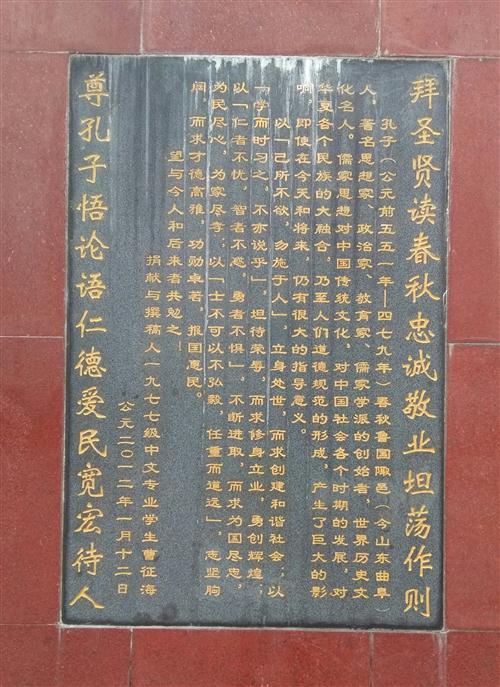 拜圣贤读春秋忠诚敬业坦荡作则
孔子（公元前五五一年—四七九年）春秋鲁国陬邑（今山东曲阜）
人。著名思想家、政治家、教育家、儒家学派的创始者，世界历史文
化名人。儒家思想对中国传统文化，对中国社会各个时期的发展，对
华夏各个民族的大融合，乃至人们道德规范的形成，产生了巨大的影
响，即使在今天和将来，仍有很大的指导意义。
以「己所不欲，勿施于人」，立身处世，而求创建和谐社会；以
「学而时习之，不亦说乎」，坦待荣辱，而求修身立业，勇创辉煌；
以「仁者不忧，智者不惑，勇者不惧」，不断进取，而求为国尽忠，
为民尽心，为家尽孝；以「士不可以不弘毅，任重而道远」，志坚胸
阔，而求才德高雅，功勋卓著，报国惠民。
望与今人和后来者共勉之！
捐献与撰稿人一九七七级中文专业学生曹征海
公元二〇一二年一月十二日
尊孔子悟论语仁德爱民宽宏待人